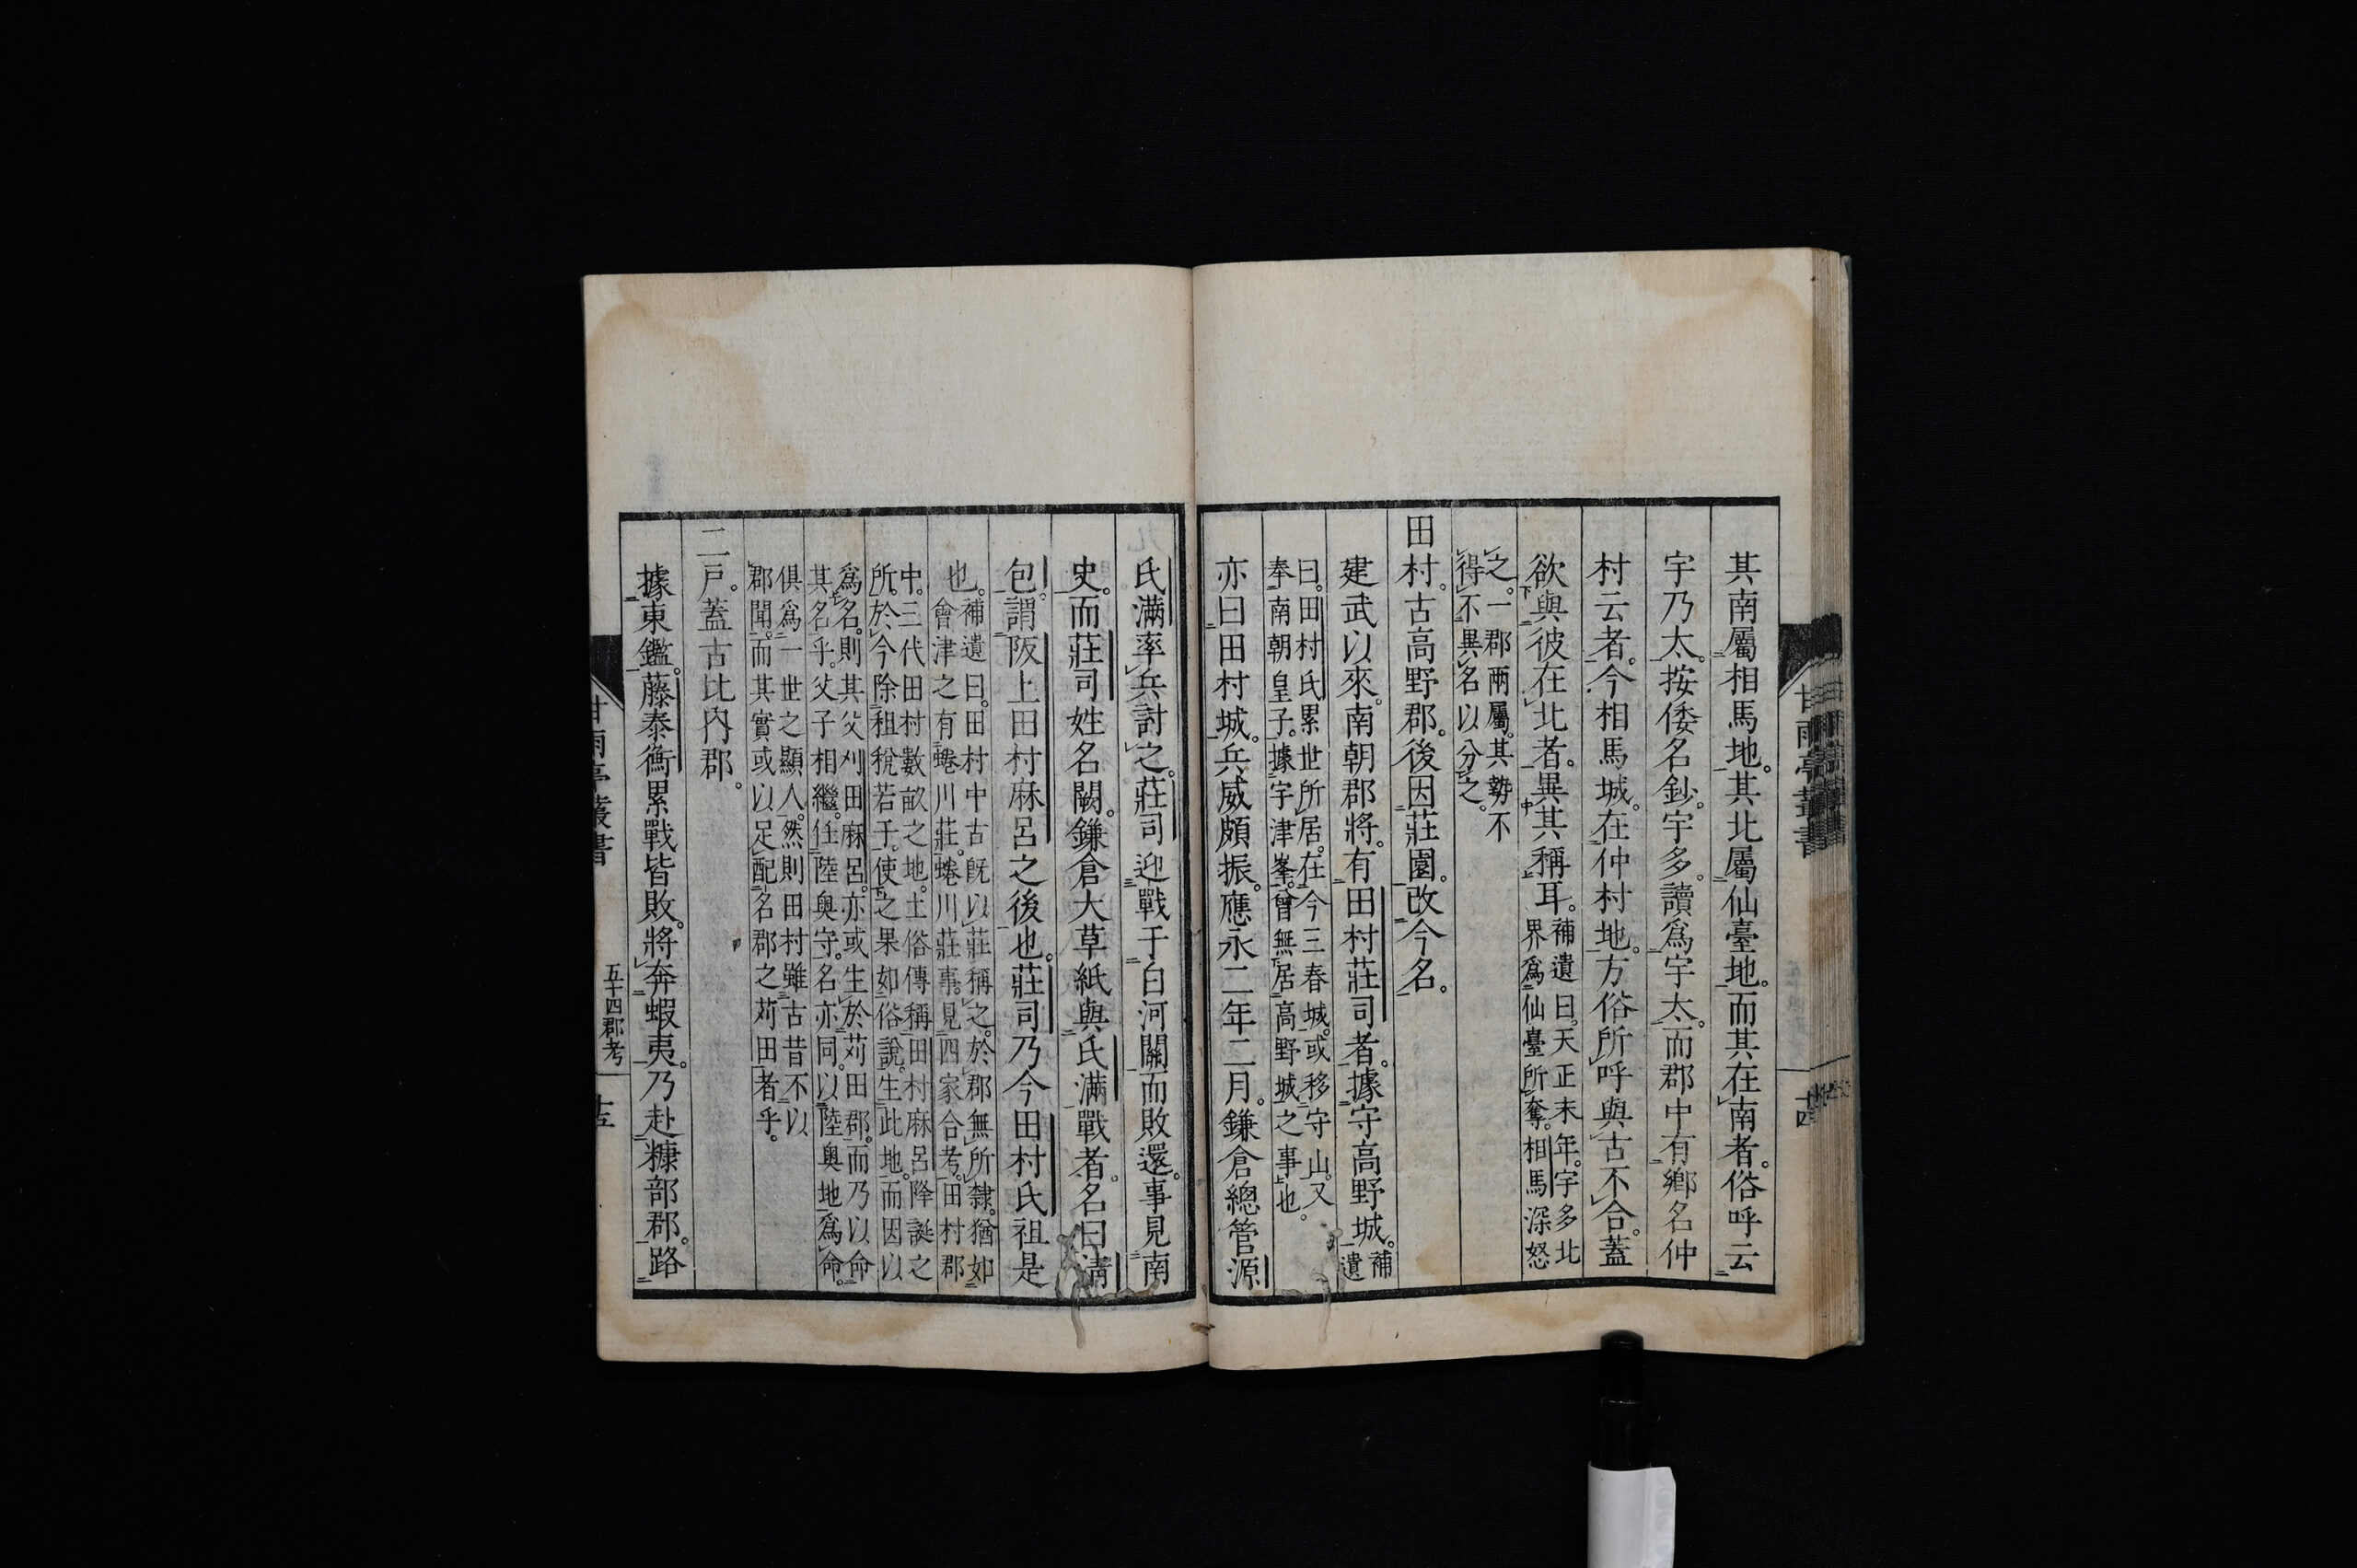 其南屬相馬地。其北屬仙臺地。而其在南者。俗呼云
宇乃太。按倭名鈔。宇多。讀爲宇太。而郡中有鄉名仲
村云者。今相馬城。在仲村地。方俗所呼與古不合。蓋
欲與彼在北者。異其稱耳。
補遺曰。天正末年。宇多北
界爲仙臺所奪。相馬深怒
之。一郡兩屬。其勢不
得不異名以分之。
田村。古高野郡。後因莊園。改今名。
建武以來。南朝郡將。有田村莊司者。據守高野城。
補遺
曰。田村氏累世所居。在今三春城。或移守山。又
奉南朝皇子。據宇津峯。曾無居高野城之事也。
亦曰田村城。兵威頗振。應永二年二月。鎌倉總管源
氏滿率兵討之。莊司迎戰于白河關而敗還。事見南
史。而莊司姓名闕。鎌倉大草紙與氏滿戰者。名曰清
包。謂阪上田村麻呂之後也。莊司乃今田村氏祖是
也。
補遺曰。田村中古既以莊稱之。於郡無所隸。猶如
會津之有蜷川莊。蜷川莊事。見四家合考。田村郡
中。三代田村數畝之地。土俗傳稱田村麻呂降誕之
所。於今除租稅若干。使之果如俗說。生此地。而因以
爲名。則其父刈田麻呂。亦或生於苅田郡。而乃以命
其名乎。父子相繼。任陸奧守。名亦同。以陸奧地爲命。
俱爲一世之顯人。然則田村雖古昔不以
郡聞。而其實或以足配名郡之苅田者乎。
二戶。蓋古比內郡。
據東鑑。藤泰衡累戰皆敗。將奔蝦夷。乃赴糠部郡。路
甘雨亭叢書
十四
甘雨亭叢書
五十四郡考
十五